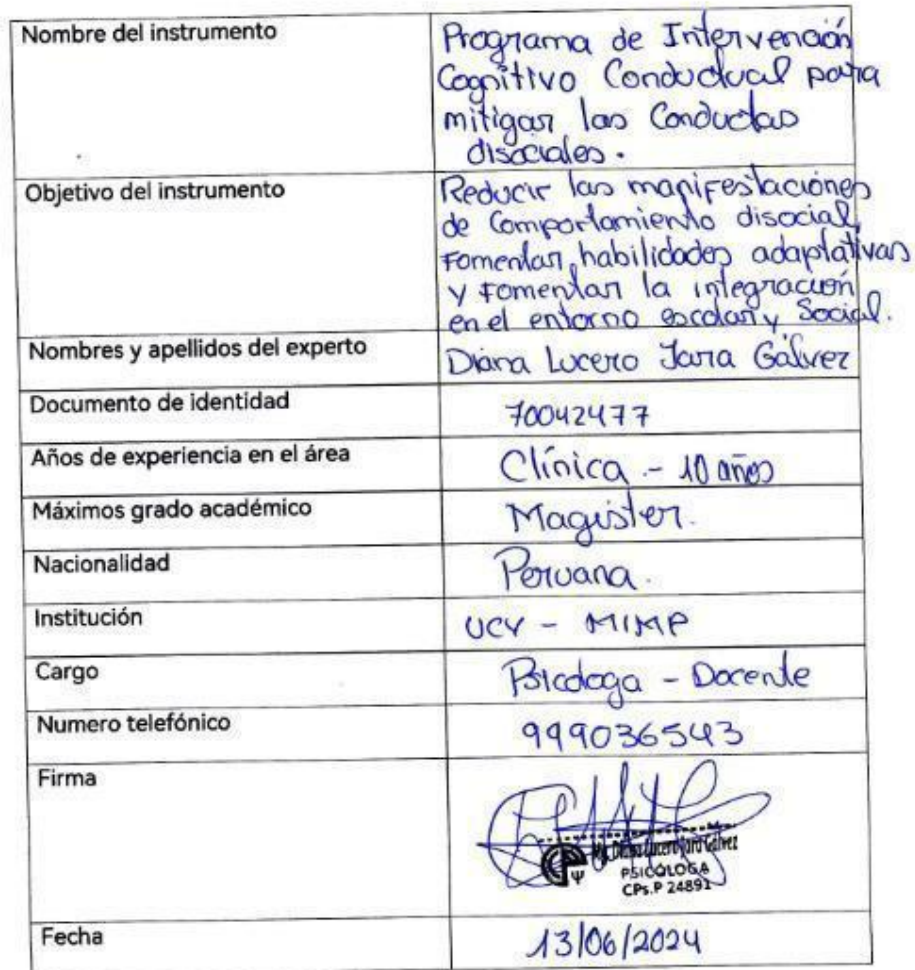 Nombre del instrumento
Programa de Intervención
Cognitivo Conductual para
mitigar las Conductas
disociales.
Objetivo del instrumento
Reducir las manifestaciones
de Comportamiento disocial,
Fomentar habilidades adaptativas
y Fomentar la integración
en el entorno escolar y Social.
Nombres y apellidos del experto
Diana Lucero Jara Gálvez
Documento de identidad
70042477
Años de experiencia en el área
Clínica - 10 años
Máximos grado académico
Magister.
Nacionalidad
Peruana.
Institución
UCV - MIMP
Cargo
Psicologa - Docente
Numero telefónico
999036543
Firma
Mg. Diana Lucero Jara Gálvez
PSICÓLOGA
CPs.P 24891
Fecha
13/06/2024